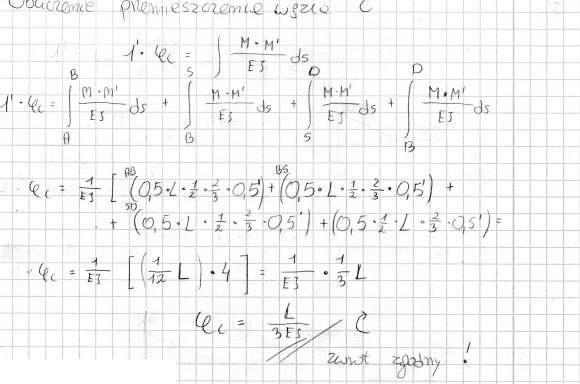 Obliczenie przemieszczenie węzła C
1'· φc = ∫ M·M'/EJ ds
1'· φc = ∫_A^B M·M'/EJ ds + ∫_B^S M·M'/EJ ds + ∫_S^D M·M'/EJ ds + ∫_B^D M·M'/EJ ds
φc = 1/EJ [ AB (0,5·L·1/2·2/3·0,5') + BS (0,5·L·1/2·2/3·0,5') +
+ SD (0,5·L·1/2·2/3·0,5') + (0,5·1/2·L·2/3·0,5') =
φc = 1/EJ [ (1/12 L)·4 ] = 1/EJ · 1/3 L
φc = L/3EJ
zwrot zgodny !